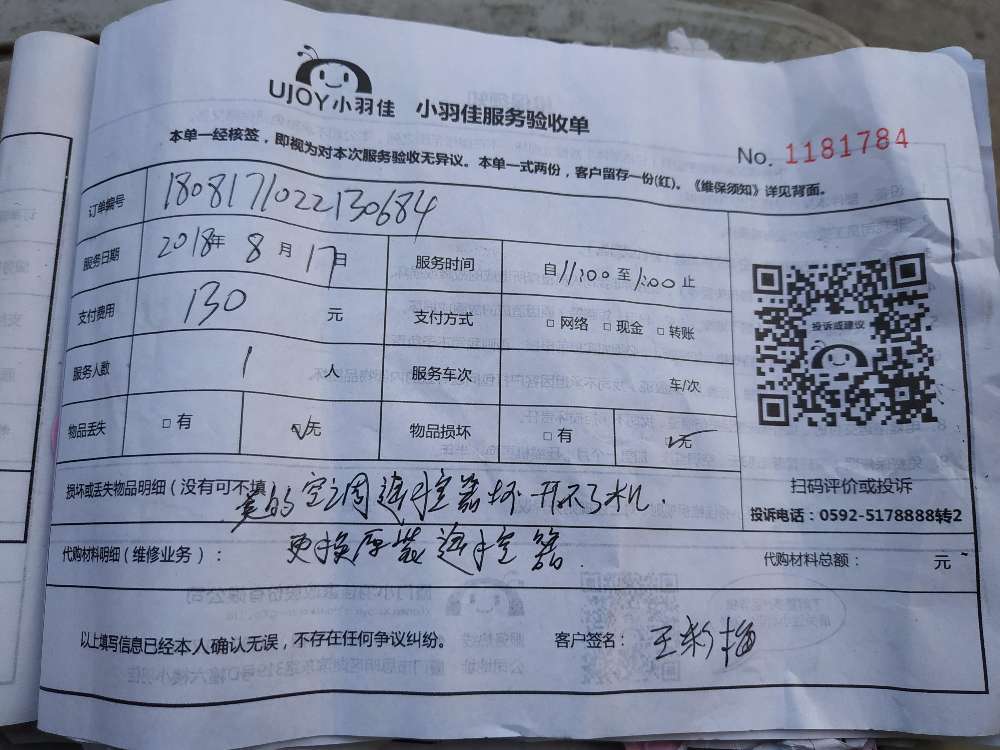 UJOY小羽佳 小羽佳服务验收单
No. 1181784
本单一经核签，即视为对本次服务验收无异议。本单一式两份，客户留存一份(红)。《维保须知》详见背面。
订单编号 1808171022130684
服务日期 2018年 8月 17日 服务时间 自11:00 至1:00止
支付费用 130 元 支付方式 □ 网络 □ 现金 □ 转账
服务人数 1 人 服务车次 车/次
物品丢失 □ 有 ☑无 物品损坏 □ 有 ☑无
投诉或建议
扫码评价或投诉
投诉电话：0592-5178888转2
损坏或丢失物品明细（没有可不填
的空调遥控器坏 开不了机.
代购材料明细（维修业务）： 更换原装遥控器. 代购材料总额： 元
以上填写信息已经本人确认无误，不存在任何争议纠纷。 客户签名： 王彩梅